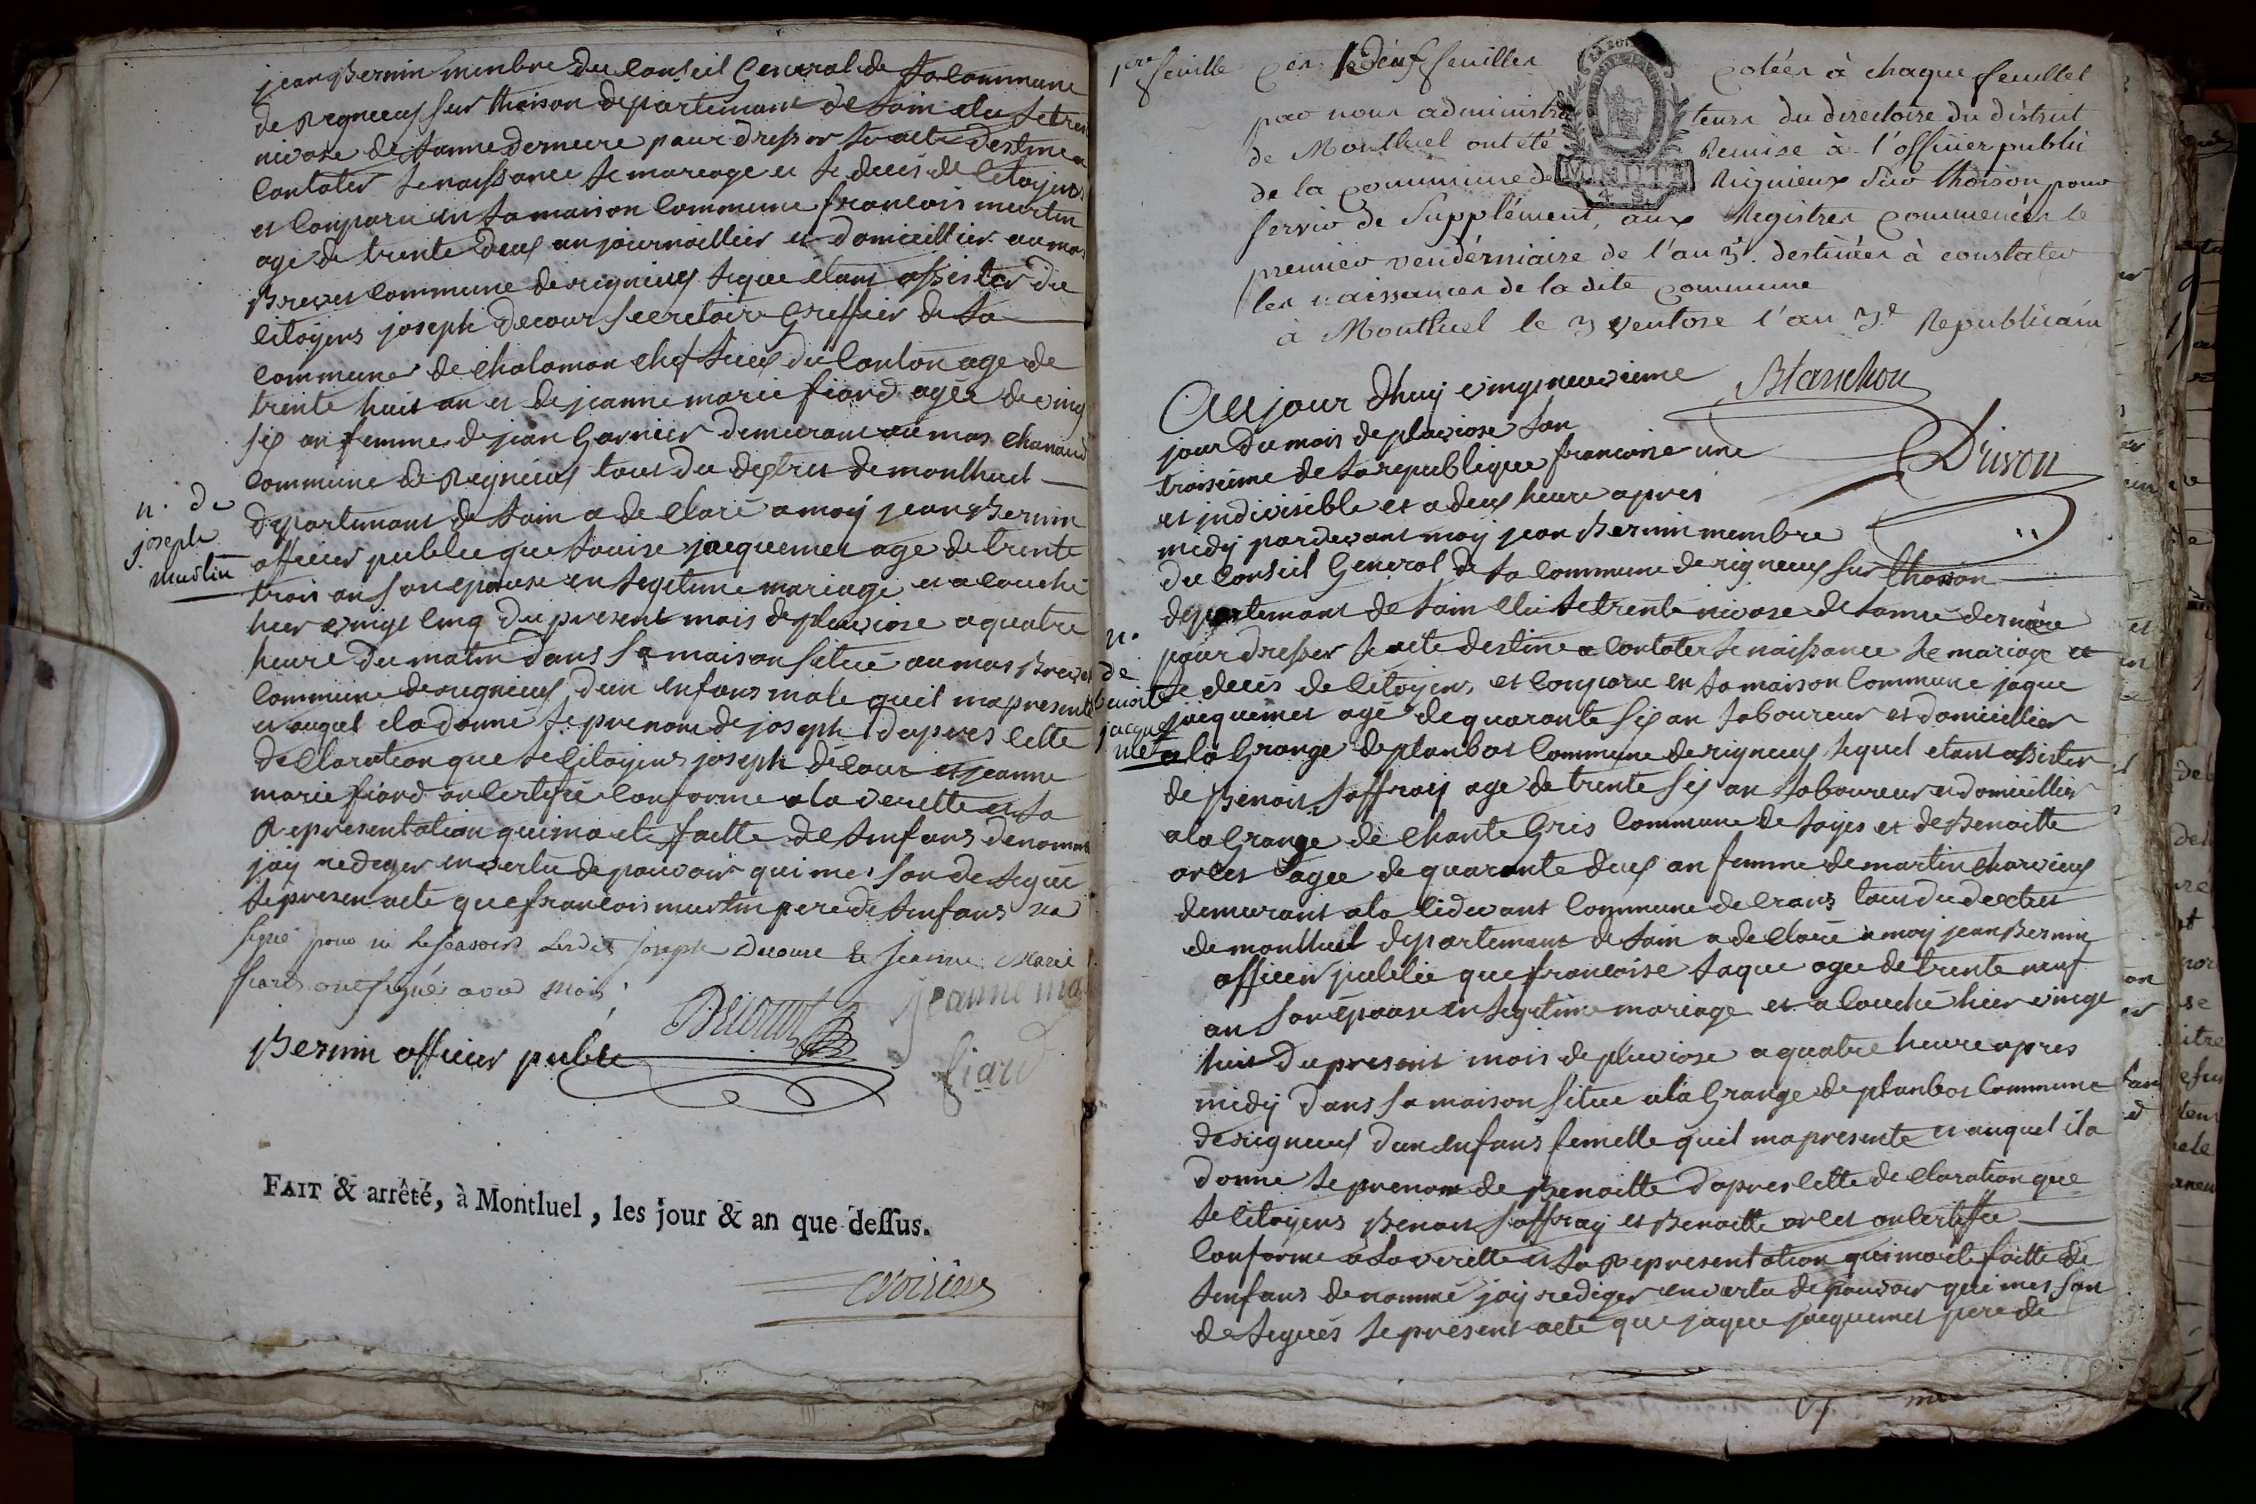 jean Bernin membre du Conseil General de la Commune
de Regneux sur thoison departemant de lain elu le trente
nivose de lanne derniere pour dresser le acte destine a
Contater le naissance le mariage et le decés de Citoyens
et Conparu en la maison Commune francois murtin
age de trente deux an journaillier et domicillier au mas
Brevet Commune de rigneux lequel etant assister du
Citoyens joseph decour secretaire Greffier de la
Commune de Chalamon chef lieux du Canton age de
trente huit an et de jeanne marie fiard agée de vingt
six an femme de jean Garnier demurant au mas Chanaud
Commune de Regneux tous du distric de montluel
n. de
joseph
murtin
departemant de lain a declaré a moy jean Bernin
officier publec que louise jacquemet age de trente
trois an son epouse en legitime mariage et acouché
hier vingt Cinq du present mois de pluviose a quatre
heure du matin dans sa maison situé au mas Brevet
Commune de rigneux dun enfans male quil ma presenté
et auquel ila donné le prenom de joseph dapres cette
declaration que le Citoyens joseph decour et jeanne
marie fiard on Certifie Conforme a la verette et la
Representation qui ma ete faitte de lenfans denommé
jay rediger en vertu de pouvoir qui mes son delegué
le presen acte que francois murtin pere de lenfans na
signé pour ne le scavoir lesdit joseph Decour & jeanne Marie
fiard ont signés avec moi
Decour
jeanne ma
fiard
Bernin officier public
FAIT & arrêté, à Montluel, les jour & an que dessus.
1ere feuille
feuilles cotées à chaque feuillet
par nous administrateurs du directoire du district
de Montluel ont été Remise à l'officier public
de la commune de Rignieux sur thoison pour
servir de supplément aux Registres commencés le
premier vendémiaire de l'an 3e. destinées à constater
les naissances de la dite commune
à Montluel le 3 ventose l'an 3.e Republicain
Blanchon
Druon
Aujour dhuy vingt neuvieme
jour du mois de pluviose lan
troisieme de la republique francoise une
et indivisible et a deux heure apres
midy pardevant moy jean Bernin membre
du Conseil General de la Commune de rigneux sur thoison
departemant de lain elu le trente nivose de lanné derniere
n.
de
benoite
jacque
met
pour dresser le acte destine a Contater le naissance le mariage et
le decés de Citoyens et Conparu en la maison Commune jaque
jacquemet agé de quarante six an laboureur et domicillier
a la Grange de planbos Commune de rigneux lequel etant assister
de Benoit soffray age de trente six an laboureur et domicillier
a la Grange de Chante Gris Commune de loyes et de Benoitte
orlet agee de quarante deux an femme de martin charvieux
demurant a la Cidevant Commune de Crans tous du distric
de montluel departemant de lain a declaré a moy jean Bernin
officier publec que francoise laque agee de trente neuf
an son épouse en legitime mariage et a couché hier vingt
huit du present mois de pluviose a quatre heure apres
midy dans sa maison situe a la Grange de planbos Commune
de rigneux dun enfans femelle quil ma presente et auquel ila
donne le prenom de Benoitte dapres cette declaration que
le Citoyens Benoit soffray et Benoitte orlet on Certiffie
Conforme a la verette et la Representation qui ma ete faitte de
lenfans denommé jay rediger en vertu de pouvoir qui mes son
delegués le present acte que jaque jacquemet pere de